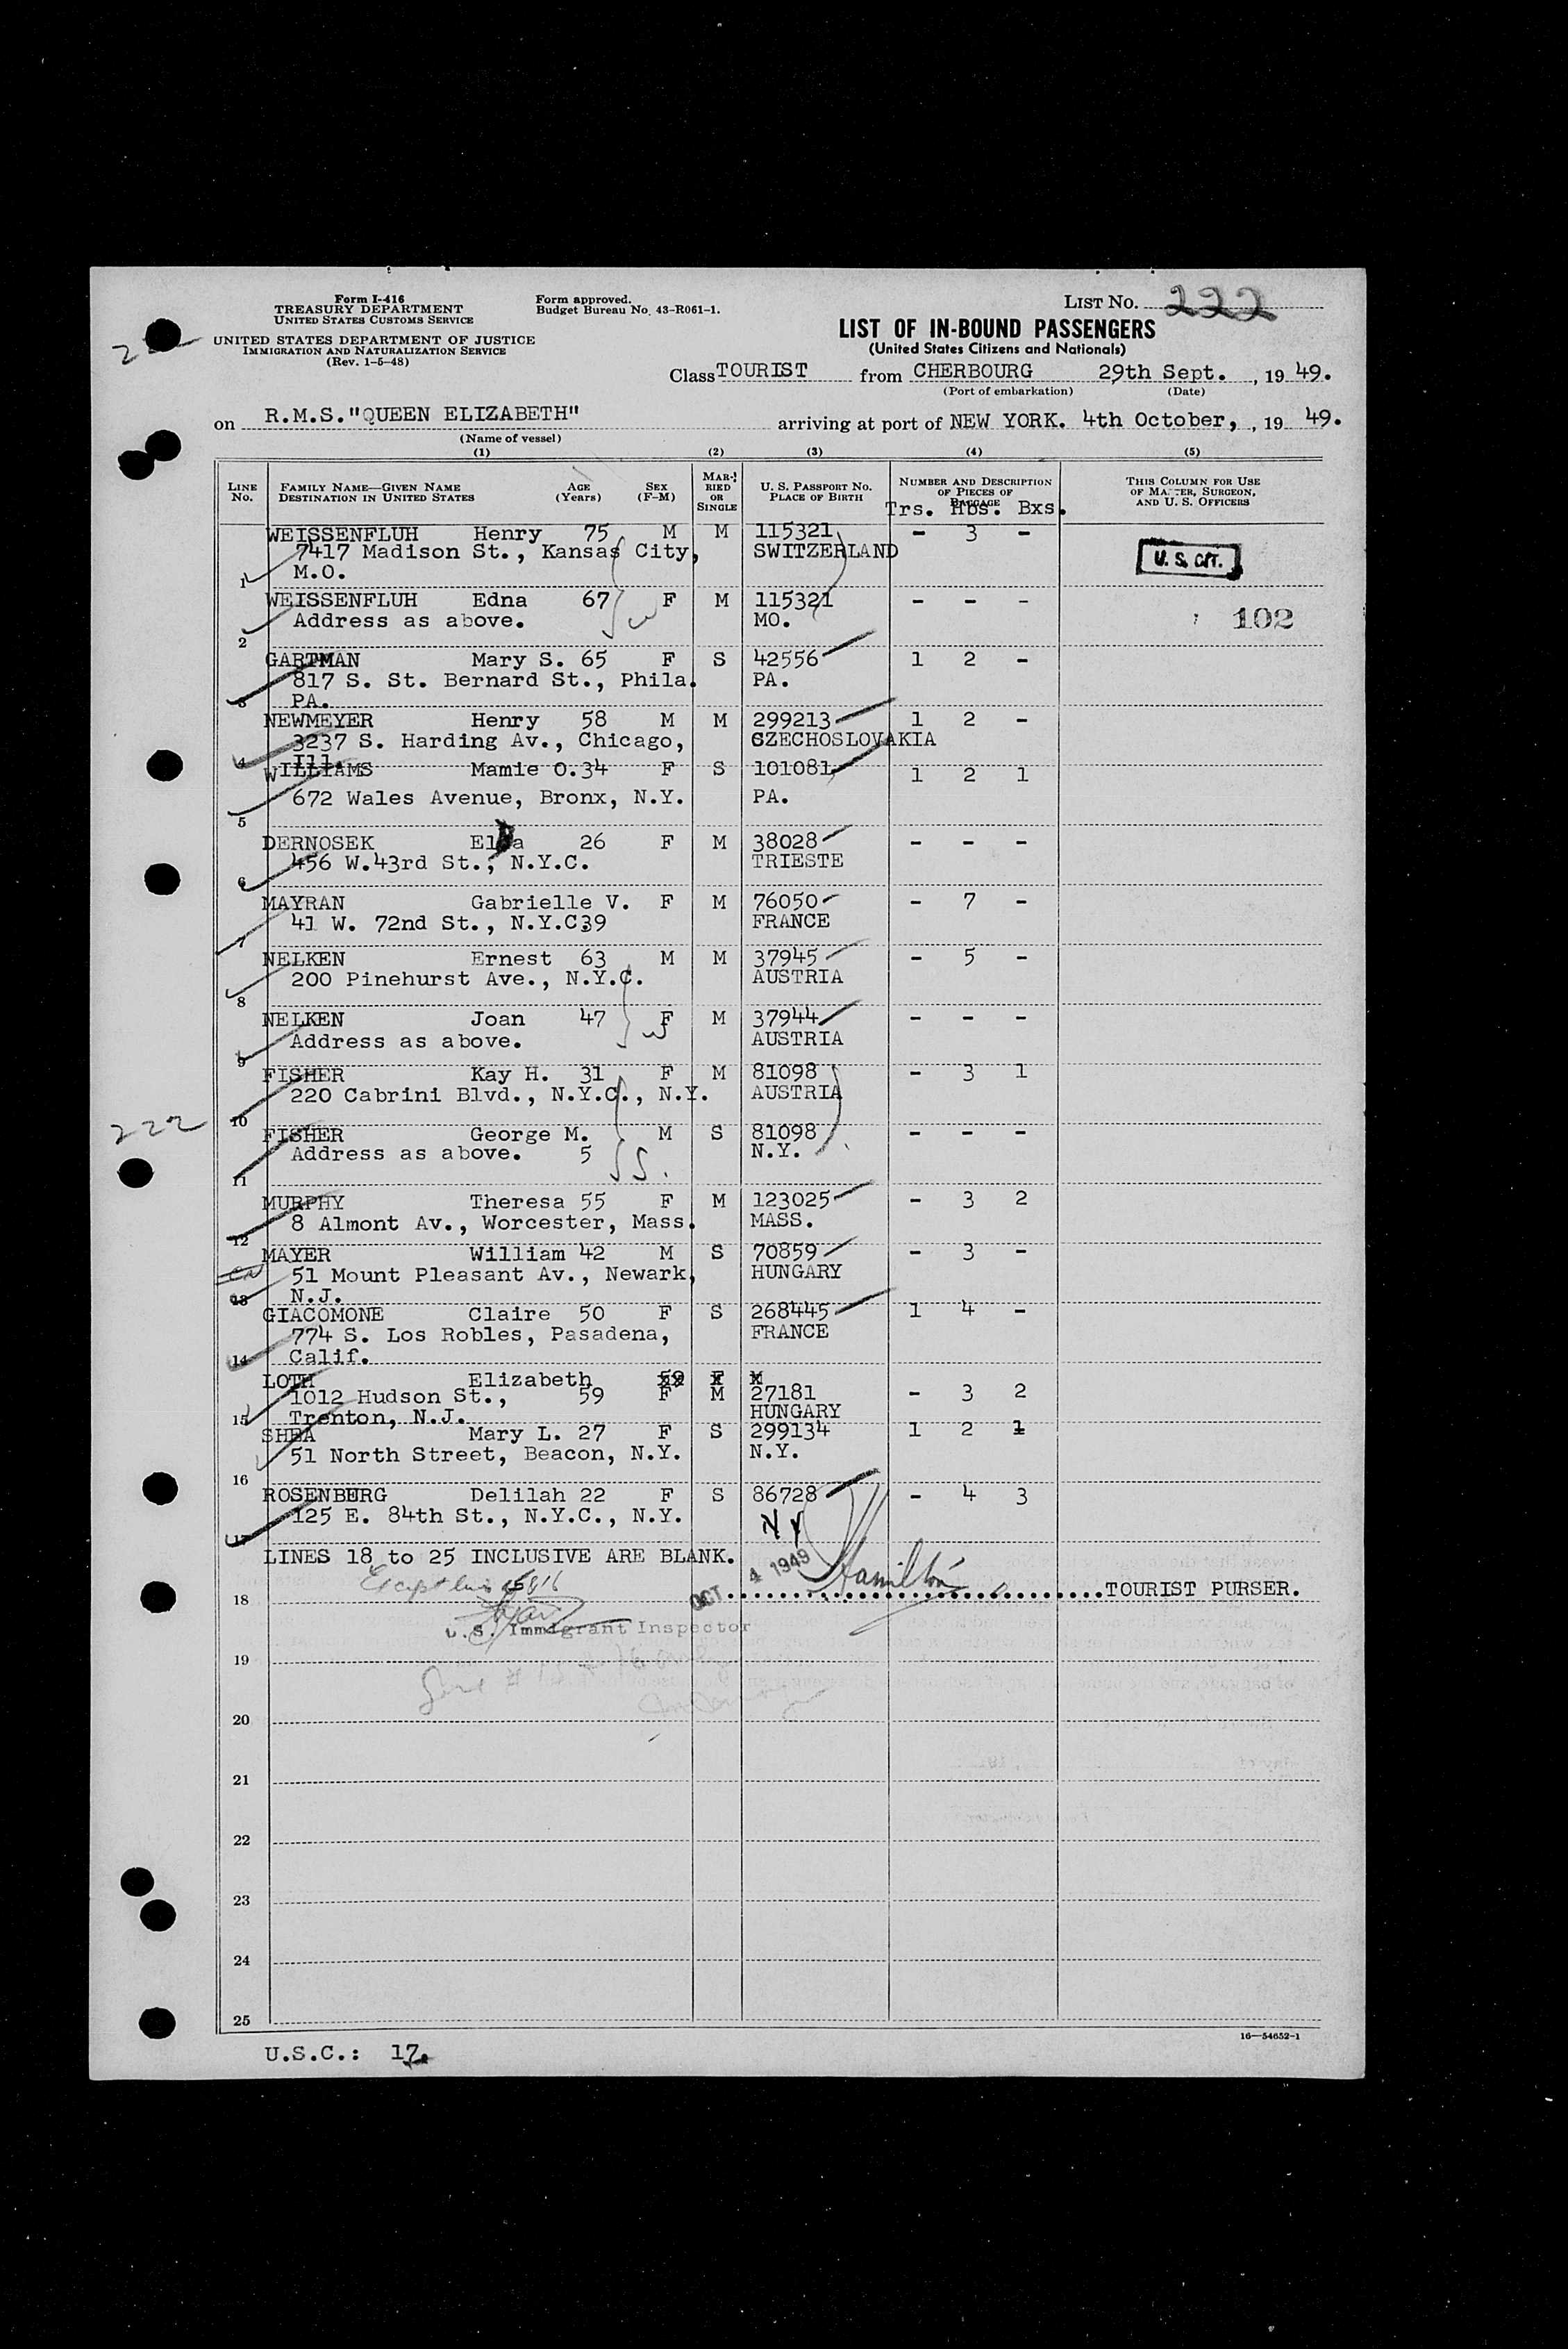 Form I-416
TREASURY DEPARTMENT
UNITED STATES CUSTOMS SERVICE
UNITED STATES DEPARTMENT OF JUSTICE
IMMIGRATION AND NATURALIZATION SERVICE
(Rev. 1-5-48)
Form approved.
Budget Bureau No. 43-R061-1.
LIST No. 222
LIST OF IN-BOUND PASSENGERS
(United States Citizens and Nationals)
Class TOURIST from CHERBOURG 29th Sept. , 19 49.
(Port of embarkation) (Date)
on R.M.S."QUEEN ELIZABETH" arriving at port of NEW YORK. 4th October, , 19 49.
(Name of vessel)
(1) (2) (3) (4) (5)
LINE No. FAMILY NAME—GIVEN NAME DESTINATION IN UNITED STATES AGE (Years) SEX (F-M) MARRIED OR SINGLE U. S. PASSPORT No. PLACE OF BIRTH NUMBER AND DESCRIPTION OF PIECES OF BAGGAGE THIS COLUMN FOR USE OF MASTER, SURGEON, AND U. S. OFFICERS
Trs. Hbs. Bxs.
WEISSENFLUH Henry 75 M M 115321 - 3 -
7417 Madison St., Kansas City, SWITZERLAND U. S. CIT.
1 M.O.
WEISSENFLUH Edna 67 F M 115321 - - -
Address as above. W MO. 102
2
GARTMAN Mary S. 65 F S 42556 1 2 -
817 S. St. Bernard St., Phila. PA.
3 PA.
NEWMEYER Henry 58 M M 299213 1 2 -
3237 S. Harding Av., Chicago, CZECHOSLOVAKIA
4 Ill.
WILLIAMS Mamie O. 34 F S 101081 1 2 1
672 Wales Avenue, Bronx, N.Y. PA.
5
DERNOSEK 26 F M 38028 - - -
456 W.43rd St., N.Y.C. TRIESTE
6
MAYRAN Gabrielle V. F M 76050 - 7 -
41 W. 72nd St., N.Y.C 39 FRANCE
7
NELKEN Ernest 63 M M 37945 - 5 -
200 Pinehurst Ave., N.Y.C. AUSTRIA
8
NELKEN Joan 47 F M 37944 - - -
Address as above. W AUSTRIA
9
FISHER Kay H. 31 F M 81098 - 3 1
220 Cabrini Blvd., N.Y.C., N.Y. AUSTRIA
10
222
FISHER George M. M S 81098 - - -
Address as above. 5 S. N.Y.
11
MURPHY Theresa 55 F M 123025 - 3 2
8 Almont Av., Worcester, Mass. MASS.
12
MAYER William 42 M S 70859 - 3 -
51 Mount Pleasant Av., Newark, HUNGARY
13 N.J.
GIACOMONE Claire 50 F S 268445 1 4 -
774 S. Los Robles, Pasadena, FRANCE
14 Calif.
LOTH Elizabeth 59 F M
1012 Hudson St., 59 F M 27181 - 3 2
15 Trenton, N.J. HUNGARY
SHEA Mary L. 27 F S 299134 1 2 1
51 North Street, Beacon, N.Y. N.Y.
16
ROSENBERG Delilah 22 F S 86728 - 4 3
125 E. 84th St., N.Y.C., N.Y. NY
17
LINES 18 to 25 INCLUSIVE ARE BLANK.
OCT 4 1949
Hamilton
18 TOURIST PURSER.
U.S. Immigrant Inspector
19
20
21
22
23
24
25
16—54652-1
U.S.C.: 17.